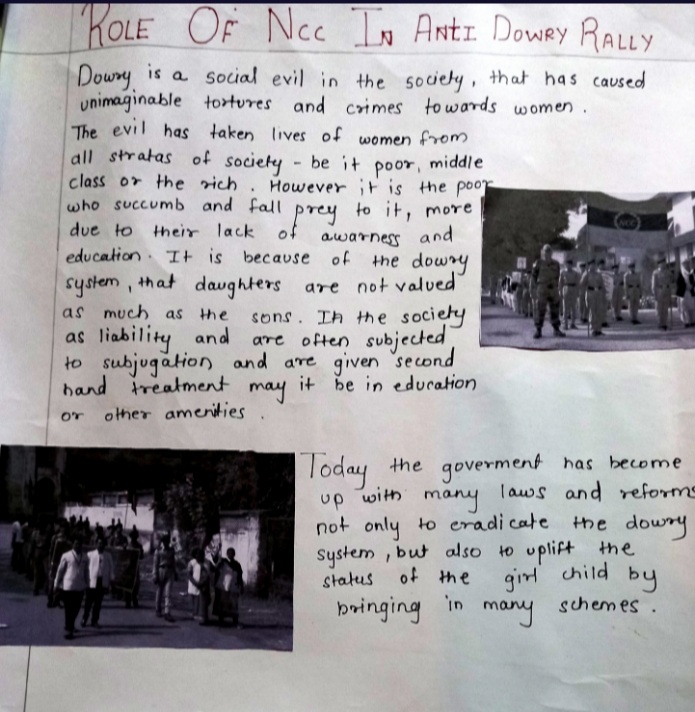 ROLE OF NCC IN ANTI DOWRY RALLY
Dowry is a social evil in the society, that has caused
unimaginable tortures and crimes towards women.
The evil has taken lives of women from
all stratas of society - be it poor, middle
class or the rich. However it is the poor
who succumb and fall prey to it, more
due to their lack of awarness and
education. It is because of the dowry
system, that daughters are not valued
as much as the sons. In the society
as liability and are often subjected
to subjugation and are given second
hand treatment may it be in education
or other amenities.
NCC
Today the goverment has become
up with many laws and reforms
not only to eradicate the dowry
system, but also to uplift the
status of the girl child by
bringing in many schemes.